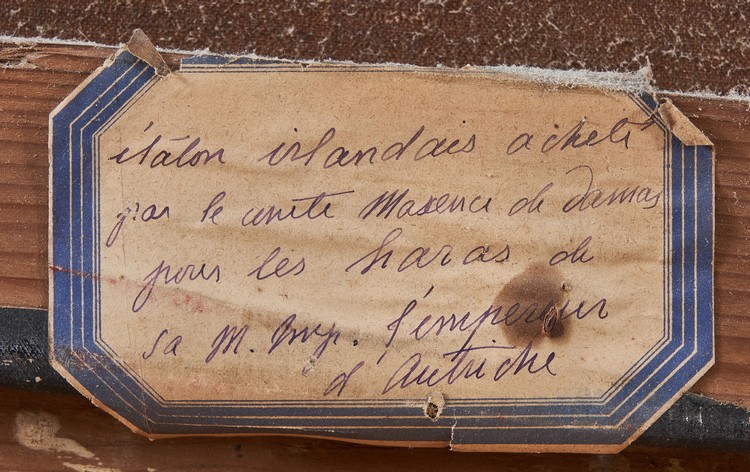 étalon irlandais acheté
par le comte Maxence de Damas
pour les haras de
sa M. Imp. l'empereur
d'Autriche